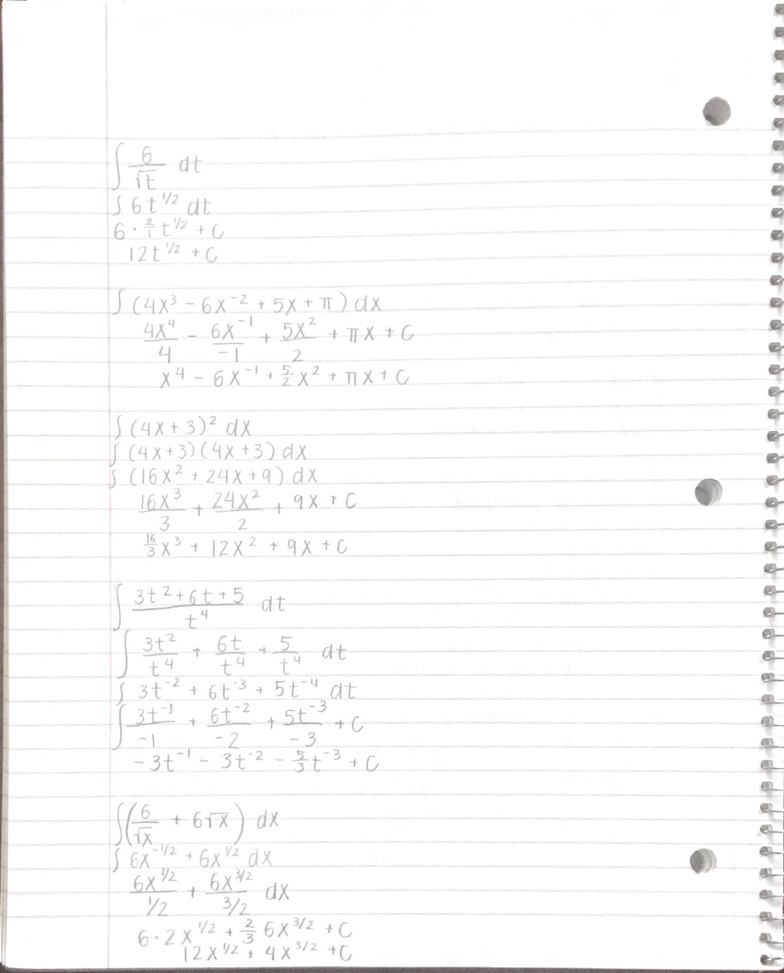 ∫ 6/√t dt
∫ 6t^(1/2) dt
6 · 2/1 t^(1/2) + C
12t^(1/2) + C
∫ (4x³ - 6x⁻² + 5x + π) dx
4x⁴/4 - 6x⁻¹/-1 + 5x²/2 + πx + C
x⁴ - 6x⁻¹ + 5/2 x² + πx + C
∫ (4x + 3)² dx
∫ (4x+3)(4x+3) dx
∫ (16x² + 24x + 9) dx
16x³/3 + 24x²/2 + 9x + C
16/3 x³ + 12x² + 9x + C
∫ (3t² + 6t + 5)/t⁴ dt
∫ 3t²/t⁴ + 6t/t⁴ + 5/t⁴ dt
∫ 3t⁻² + 6t⁻³ + 5t⁻⁴ dt
∫ 3t⁻¹/-1 + 6t⁻²/-2 + 5t⁻³/-3 + C
-3t⁻¹ - 3t⁻² - 5/3 t⁻³ + C
∫ (6/√x + 6√x) dx
∫ 6x^(-1/2) + 6x^(1/2) dx
6x^(1/2)/(1/2) + 6x^(3/2)/(3/2) dx
6 · 2x^(1/2) + 2/3 6x^(3/2) + C
12x^(1/2) + 4x^(3/2) + C